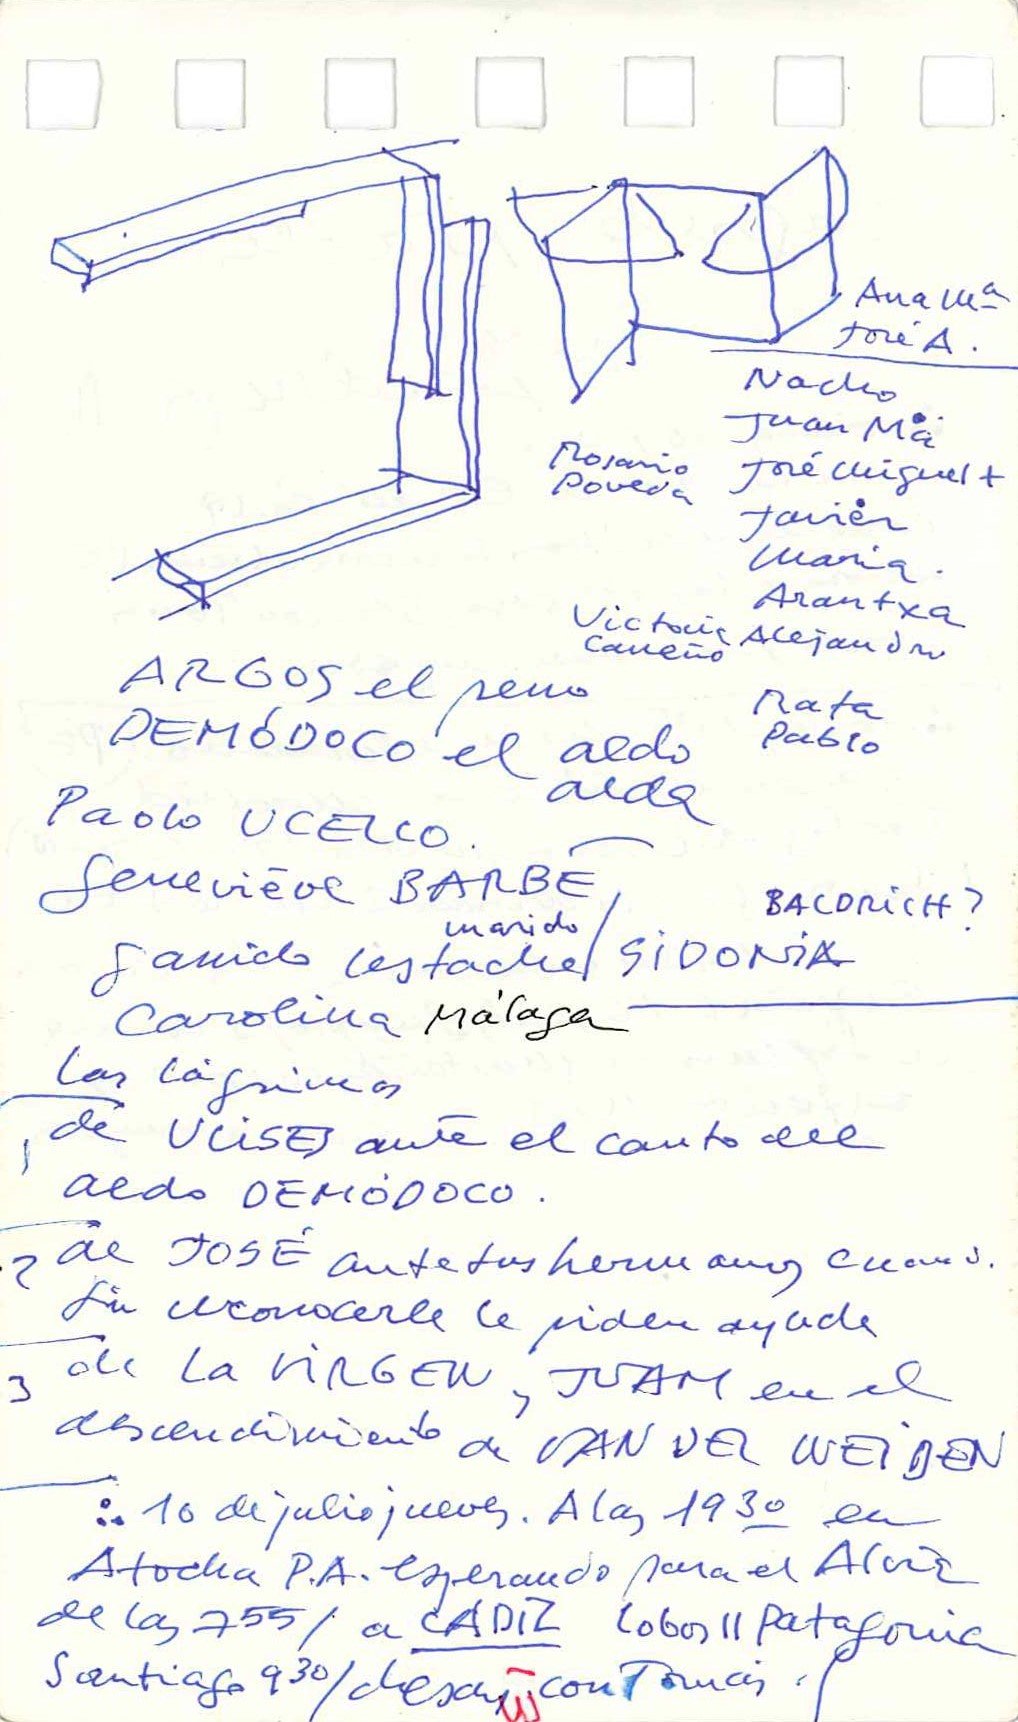 Ana Mª
José A.
Nacho
Juan Mª
José Miguel +
Rosario
Poveda
Javier
María.
Arantxa
Victoria
Carreño
Alejandro
Rafa
Pablo
ARGOS el perro
DEMÓDOCO el aedo
aeda
Paolo UCELLO.
Geneviève BARBÉ
BALDRICH?
marido
Garrido Lestache / SIDONIA
Carolina Málaga
Las lágrimas
1 de ULISES ante el canto del
aedo DEMÓDOCO.
2 de JOSÉ ante sus hermanos cuando
sin reconocerle le piden ayuda
3 de LA VIRGEN y JUAN en el
descendimiento de VAN DER WEIDEN
∴ 10 de julio jueves. A las 19 30 en
Atocha P.A. esperando para el Alvia
de las 755/ a CÁDIZ lobos || Patagonia
Santiago 930/ con Tomás.